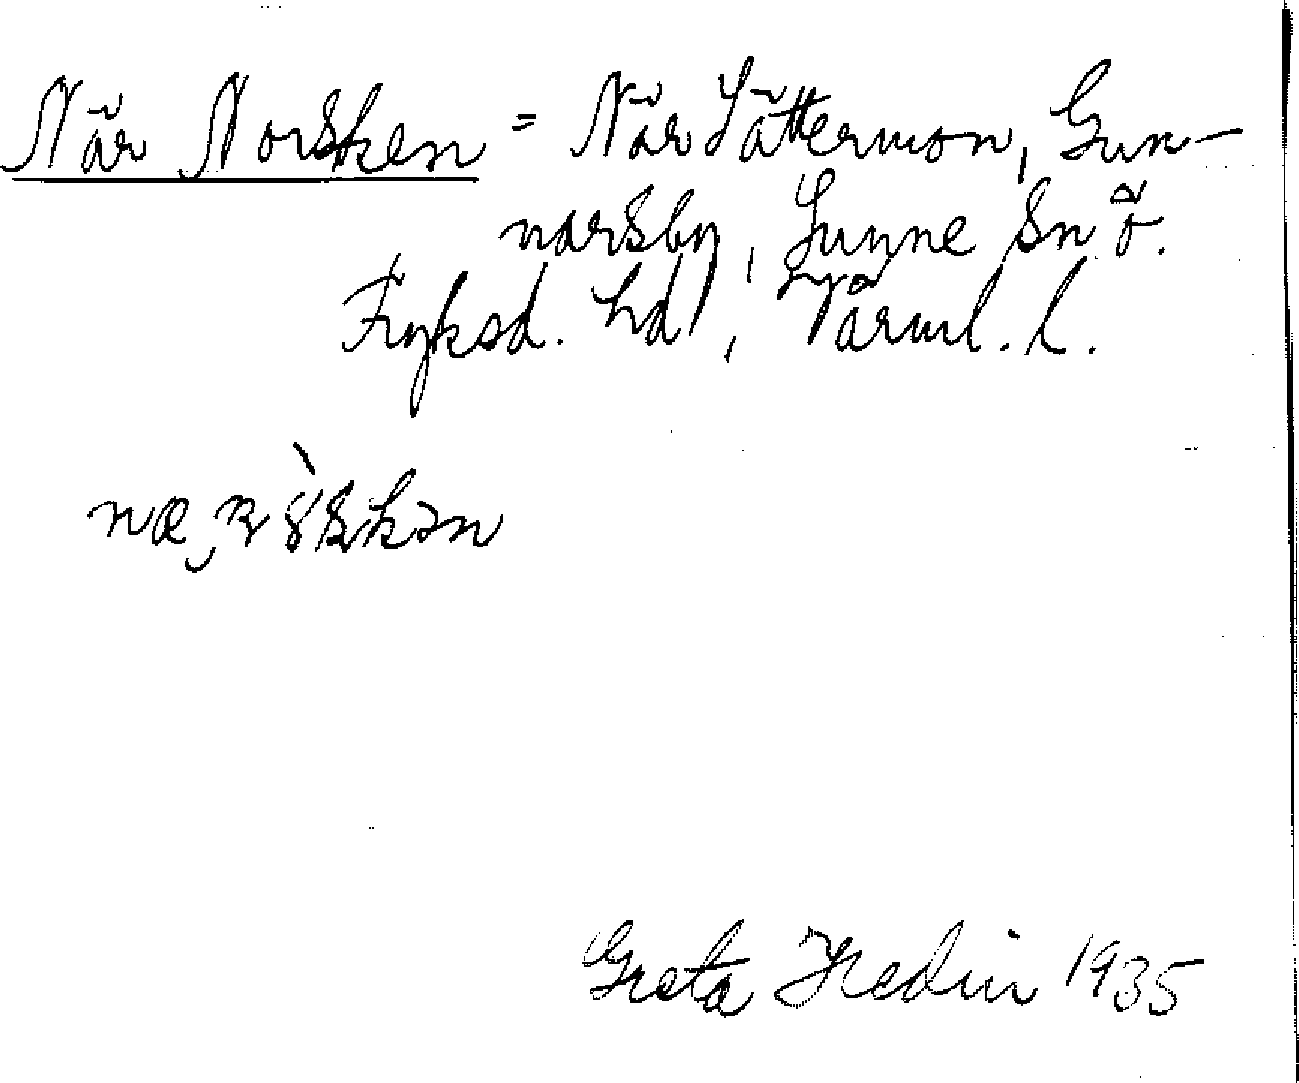 När Norsken = När Sättermon, Gun-
narsby, Sunne sn ö.
Fryksd. hd, Värml. l.
Greta Hedin 1935